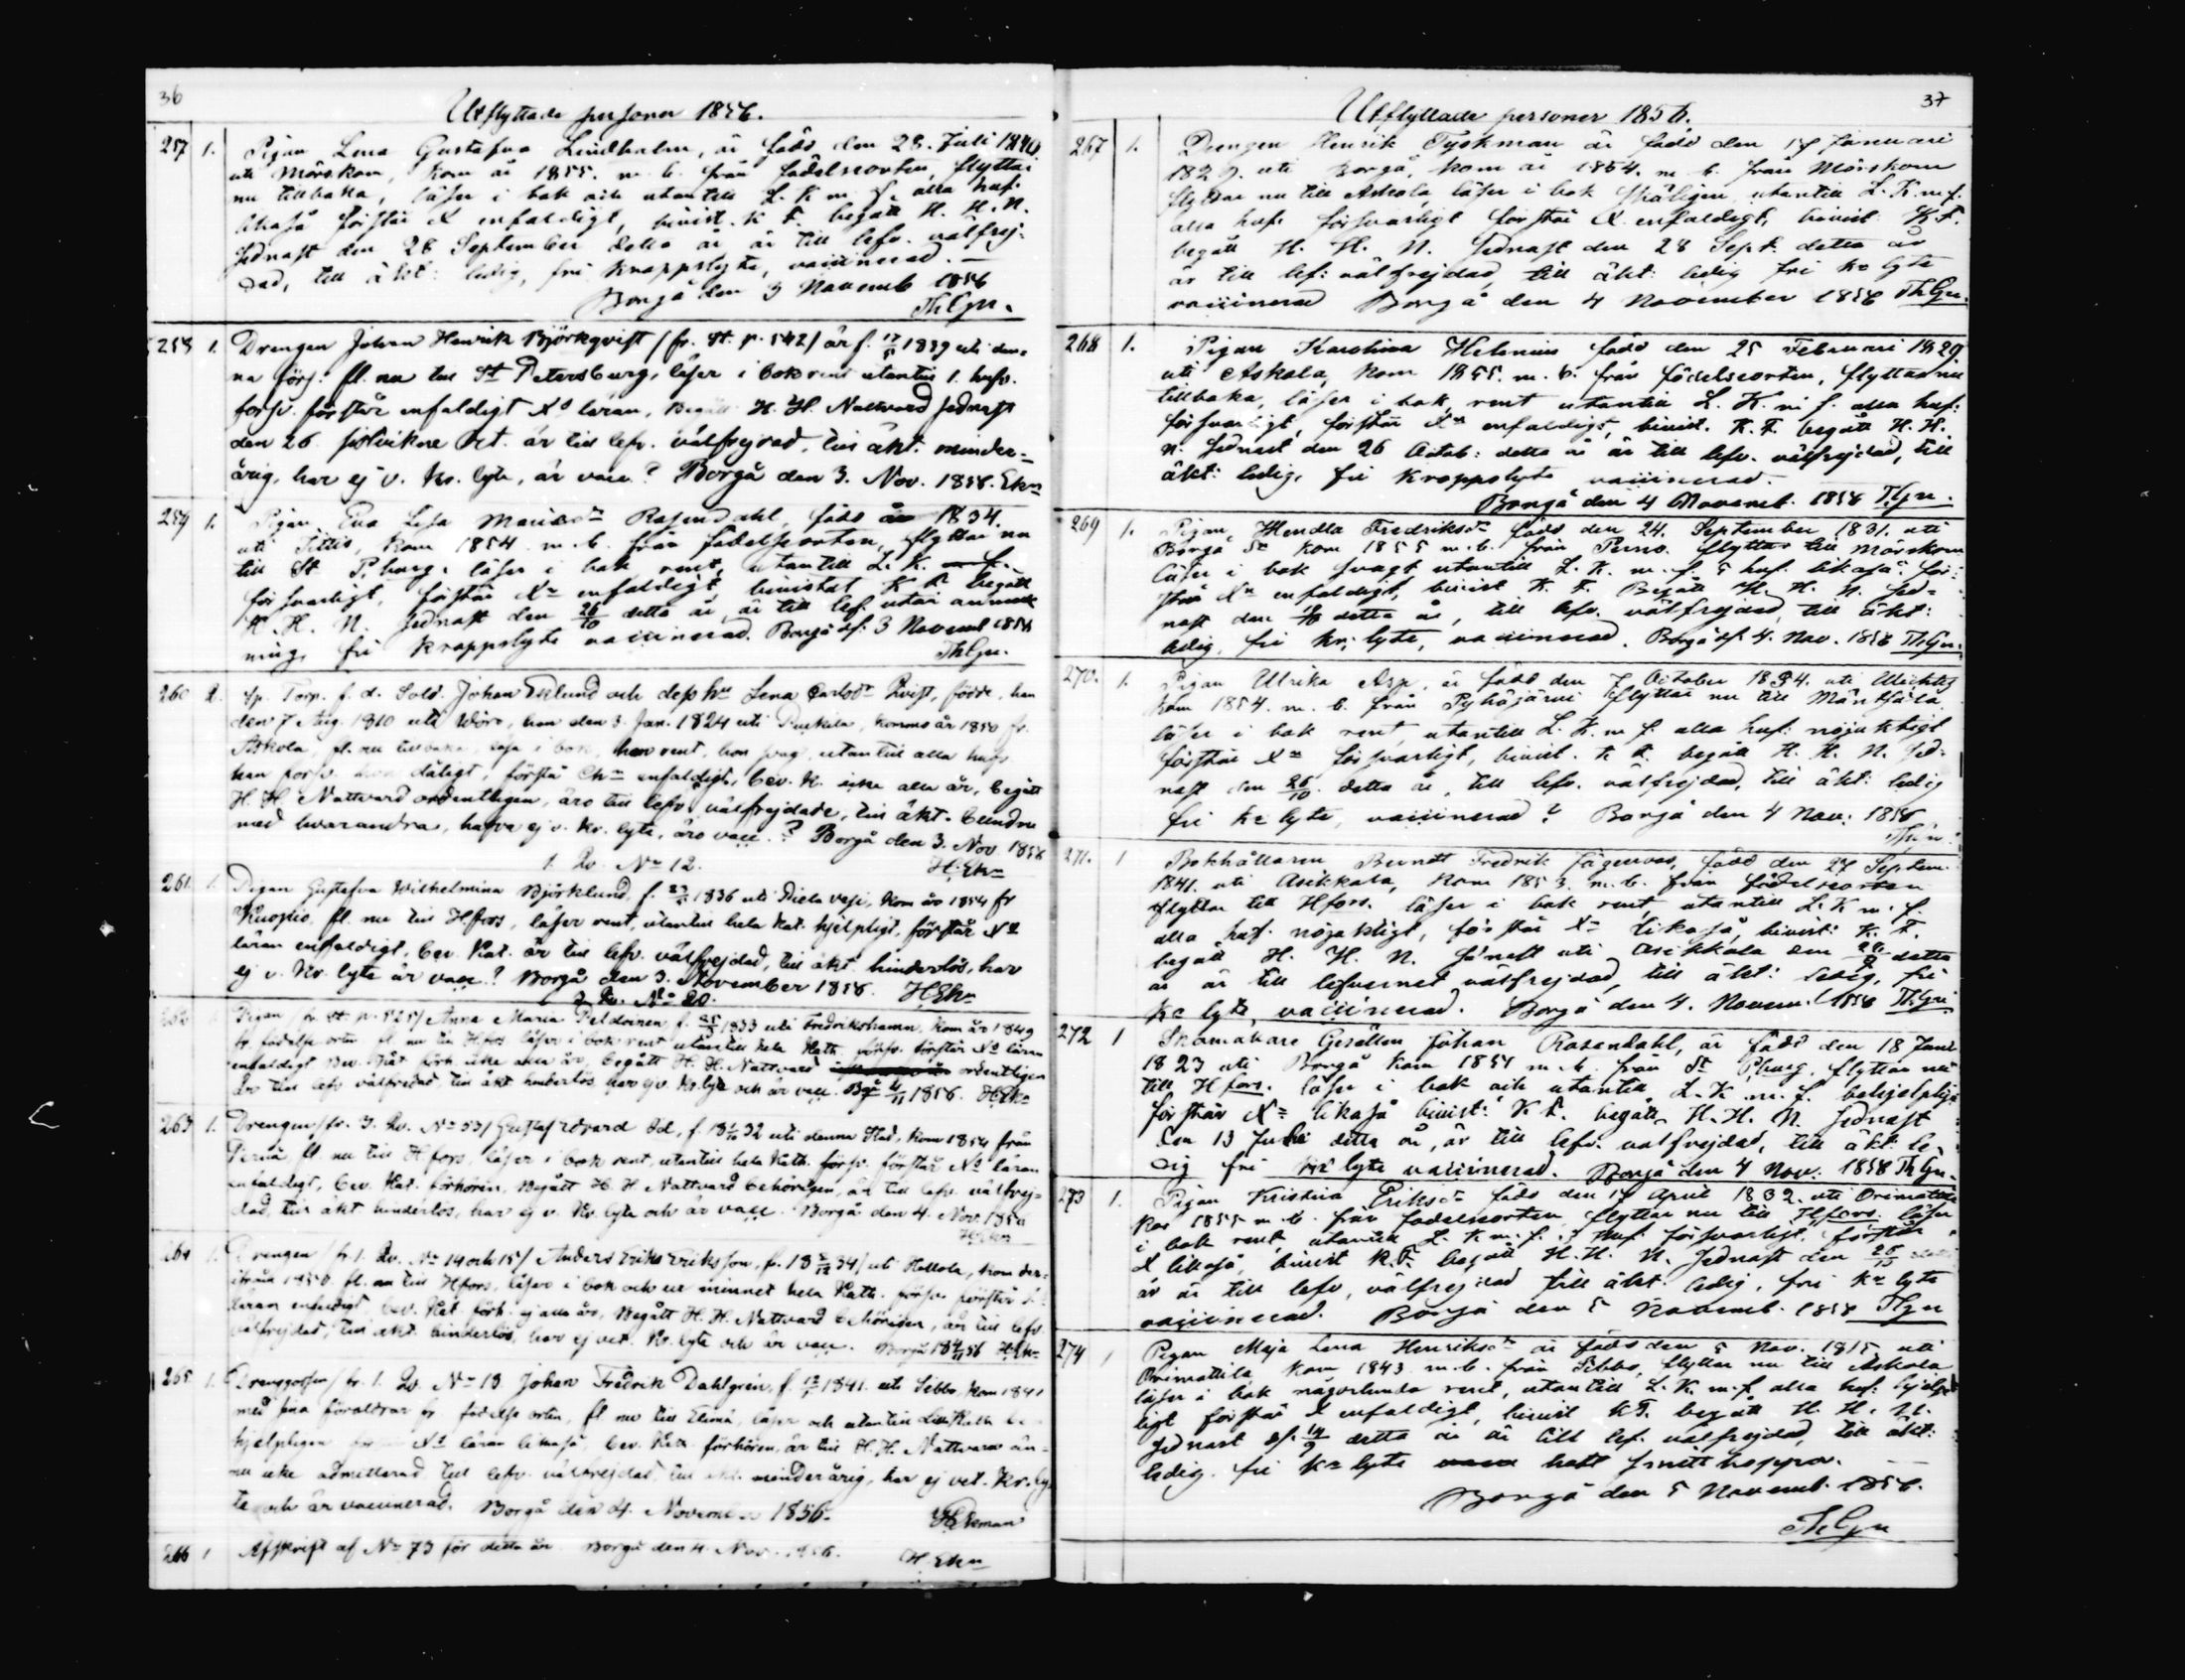 36
Utflyttade personer 1856.
257 1. Pigan Lena Gustafva Lindholm, är född den 28. Juli 1840
uti Mörskom, kom år 1855. m. b. från födelseorten, flyttar
nu tillbaka, läser i bok och utantill L. K. m. f. alla huf.
likaså förstår X enfaldigt, bivist. K. F. begått H. H. N.
sednast den 28 September detta år är till lefv. välfrej-
dad, till äkt: ledig, fri kroppslyte, vaccinerad. —
Borgå den 3 Novemb 1856
ThGn.
258 1. Drengen Johan Henrik Björkqvist /fr. St. p. 542/ är f. 17/5 1839 uti den-
na förs: fl. nu till St Petersburg, läser i bok rent utantill 1. hufv.
försv. förstår enfaldigt Xd läran, Begått H. H. Nattvard sednast
den 26. sistvikne Oct. är till lefv. välfrejdad, till äkt. minder-
årig, har ej v. kr. lyte, är vacc? Borgå den 3. Nov. 1856. Ekn
259 1. Pigan Eva Lisa Mariasdr Rosendahl, född år 1834.
uti Sittis, kom 1854 m. b. från födelseorten, flyttar nu
till St P.burg. läser i bok rent, utantill L. K.
försvarligt, förstår Xn enfaldigt, bivistat K F begått
H. H. N. sednast den 26/10 detta år, är till lef. utan anmärk
ning, fri kroppslyte vaccinerad. Borgå d. 3 Novemb 1856
ThGn.
260 2. Sp. Torp. f. d. Sold. Johan Eklund och dess hu Lena Carlsdr Qvist, födde, han
den 7 Aug. 1810 uti Wörå, hon den 3. Jan. 1824 uti Puckila, kommo år 1850 fr.
Askola, fl. nu tillbaka, läsa i bok, han rent, hon svag, utantill alla hufv.
han försv. hon dåligt, förstå Chn enfaldigt, bev. K. icke alla år, begått
H. H. Nattvard ordentligen, äro till lefv. välfrejdade, till äkt. bundne
med hvarandra, hafva ej v. kr. lyte, äro vacc.? Borgå den 3. Nov. 1856
1. Qv. No 12. H. Ekn
261. 1. Pigan Gustafva Wilhelmina Björklund, f. 1836 uti Pielavesi, kom år 1854 fr
Kuopio, fl. nu till Hfors, läser rent, utantill hela Kat. hjelpligt, förstår Xd
läran enfaldigt, bev. Kat. är till lefv. välfrejdad, till äkt. hinderlös, har
ej v. Kr. lyte är vacc? Borgå den 3. November 1856. HEkn
2 Qv. No 20.
262 Pigan /fr. St. p. 525/ Anna Maria Peldoinen, f. 25/3 1833 uti Fredrikshamn, kom år 1849
fr. födelse orten fl. nu till Hfors läser i bok rent utantill hela Kath. försv. förstår Xd läran
enfaldigt Bev. Kat. förh. icke alla år, begått H. H. Nattvard ordentligen
är till lefv välfrejdad till äkt hinderlös har ej v. Kr. lyte och är vacc. Bgå 4/11 1856. HEkn
263 1. Drengen /fr. 3. Qv. No 53/ Gustaf Edvard Od, f. 18 32 uti denna Stad, kom 1854 från
Pernå, fl. nu till Hfors, läser i bok rent, utantill hela Kath. försv. förstår Xd läran
enfaldigt, bev. Kat. förhören, Begått H. H. Nattvard behörigen, är till lefv. välfrej-
dad, till äkt hinderlös, har ej v. Kr. lyte och är vacc. Borgå den 4. Nov. 1856
HEkn
264 1. Drengen /fr. 1. Qv. No 14 och 15/ Anders Eriks Eriksson, f. 18 34/ uti Hollola, kom der-
ifrån 1850. fl. nu till Hfors, läser i bok och ur minnet hela Kath. försv. förstår
läran enfaldigt, bev. Kat. förh. ej alla år, Begått H. H. Nattvard behörigen, är till lefv.
välfrejdad, till äkt. hinderlös, har ej vet. Kr. lyte och är vacc. Borgå 18 4/11 56 HEkn
265 1. Drenggossen /fr. 1. Qv. No 13. Johan Fredrik Dahlgrén, f. 1841. uti Sibbo, kom 1841
med sina föräldrar fr. födelse orten, fl nu till Elimä, läser och utantill Lilla Kath. be-
hjelpligen Xd läran likaså, bev. Kath. förhören, är till H. H. Nattvard än-
nu icke admitterad, till lefv. välfrejdad, till äkt. minderårig, har ej vet. Kr. ly-
te och är vaccinerad. Borgå den 4. November 1856. HEkman
266 1 Afskrift af No 73 för detta år. Borgå den 4. Nov. 1856. H. Ekn
37
Utflyttade personer 1856.
267 1. Drengen Henrik Tyskman är född den 17 Januari
1829. uti Borgå, kom år 1854. m. b. från Mörskom
flyttar nu till Askola, läser i bok skäligen, utantill L. K. m. f.
alla huf. försvarligt förstår X. enfaldigt, bivist K. F.
begått H. H. N. sednast den 28 Sept. detta år
är till lef: välfrejdad, till äkt: ledig fri kr lyte
vaccinerad Borgå den 4 November 1856 ThGn.
268 1. Pigan Karolina Helenius född den 25 Februari 1829.
uti Askola, kom 1855. m. b. från födelseorten, flyttar nu
tillbaka, läser i bok rent utantill L. K. m f. alla huf:
försvarligt, förstår Xn enfaldigt, bivist. K. F. begått H. H.
N. sednast den 26 Octob: detta år är till lefv. välfrejdad, till
äkt: ledig, fri kroppslyte vaccinerad.
Borgå den 4 Novemb. 1856 ThGn.
269 1. Pigan Hendla Fredriksdr född den 24. September 1831. uti
Borgå Sn kom 1855 m. b. från Perno. flyttar till Mörskom
läser i bok svagt utantill L. K. m. f. 5 huf. likaså för-
står Xn enfaldigt, bivist K. F. Begått H. H. N. sed-
nast den detta år, till lefv. välfrejdad, till äkt:
ledig, fri kr: lyte, vaccinerad. Borgå d. 4. Nov. 1856 ThGn.
270. 1. Pigan Ulrika Asp, är född den 7 October 1834. uti
kom 1854. m. b. från Pyhäjärvi flyttar nu till Mäntsälä.
läser i bok rent, utantill L. K. m f. alla huf: nöjaktigt
förstår Xn försvarligt, bivist. K F. begått H. H. N. sed-
nast den 26/10. detta år, till lefv. välfrejdad, till äkt: ledig
fri kr lyte, vaccinerad? Borgå den 4 Nov: 1856
ThGn.
271. 1 Bokhållaren Berndt Fredrik Fågervas, född den 27 Septem.
1841. uti Asikkala, kom 1853. m. b. från födelseorten
flyttar till Hfors. läser i bok rent, utantill L. K m. f.
alla huf. nöjaktigt, förstår Xn likaså, bivist: K. F.
begått H. H. N. sednast uti Asikkala den detta
år är till lefvernet välfrejdad, till äkt: ledig, fri
kr lyte, vaccinerad. Borgå den 4. Novem. 1856 ThGn
272 1 Skomakare Gesällen Johan Rosendahl, är född den 18 Juni
1823 uti Borgå kom 1854 m. b. från St Pburg. flyttar nu
till Hfors. läser i bok och utantill L. K. m. f. behjelpligt
förstår Xn likaså bivist: K F. begått H. H. N. sednast
den 13 Juli detta år, är till lefv. välfrejdad, till äkt: le-
dig fri kr lyte vaccinerad. Borgå den 4 Nov. 1856 ThGn.
273 1. Pigan Kristina Eriksdr född den 14 April 1832. uti Orimattila
kom 1855 m. b. från födelseorten flyttar nu till Hfors. läser
i bok rent, utantill L. K. m. f. 5 huf. försvarligt, förstår
X likaså, bivist K. F. begått H. H. N. sednast den 26/10 detta
år är till lefv. välfrejdad till äkt. ledig, fri kr lyte
vaccinerad. Borgå den 5 Novemb. 1856 ThGn
274 1 Pigan Maja Lena Henriksdr är född den 5 Nov. 1815 uti
Orimattila kom 1843 m. b. från Sibbo, flyttar nu till Askola
läser i bok någorlunda rent, utantill L. K. m. f. alla huf: hjelp-
ligt förstår X enfaldigt, bivist K F. begått H. H. N.
sednast d. 14/9 detta år är till lef. välfrejdad, till äkt:
ledig. fri kr lyte haft smittkoppor.
Borgå den 5 Novemb. 1856.
ThGn